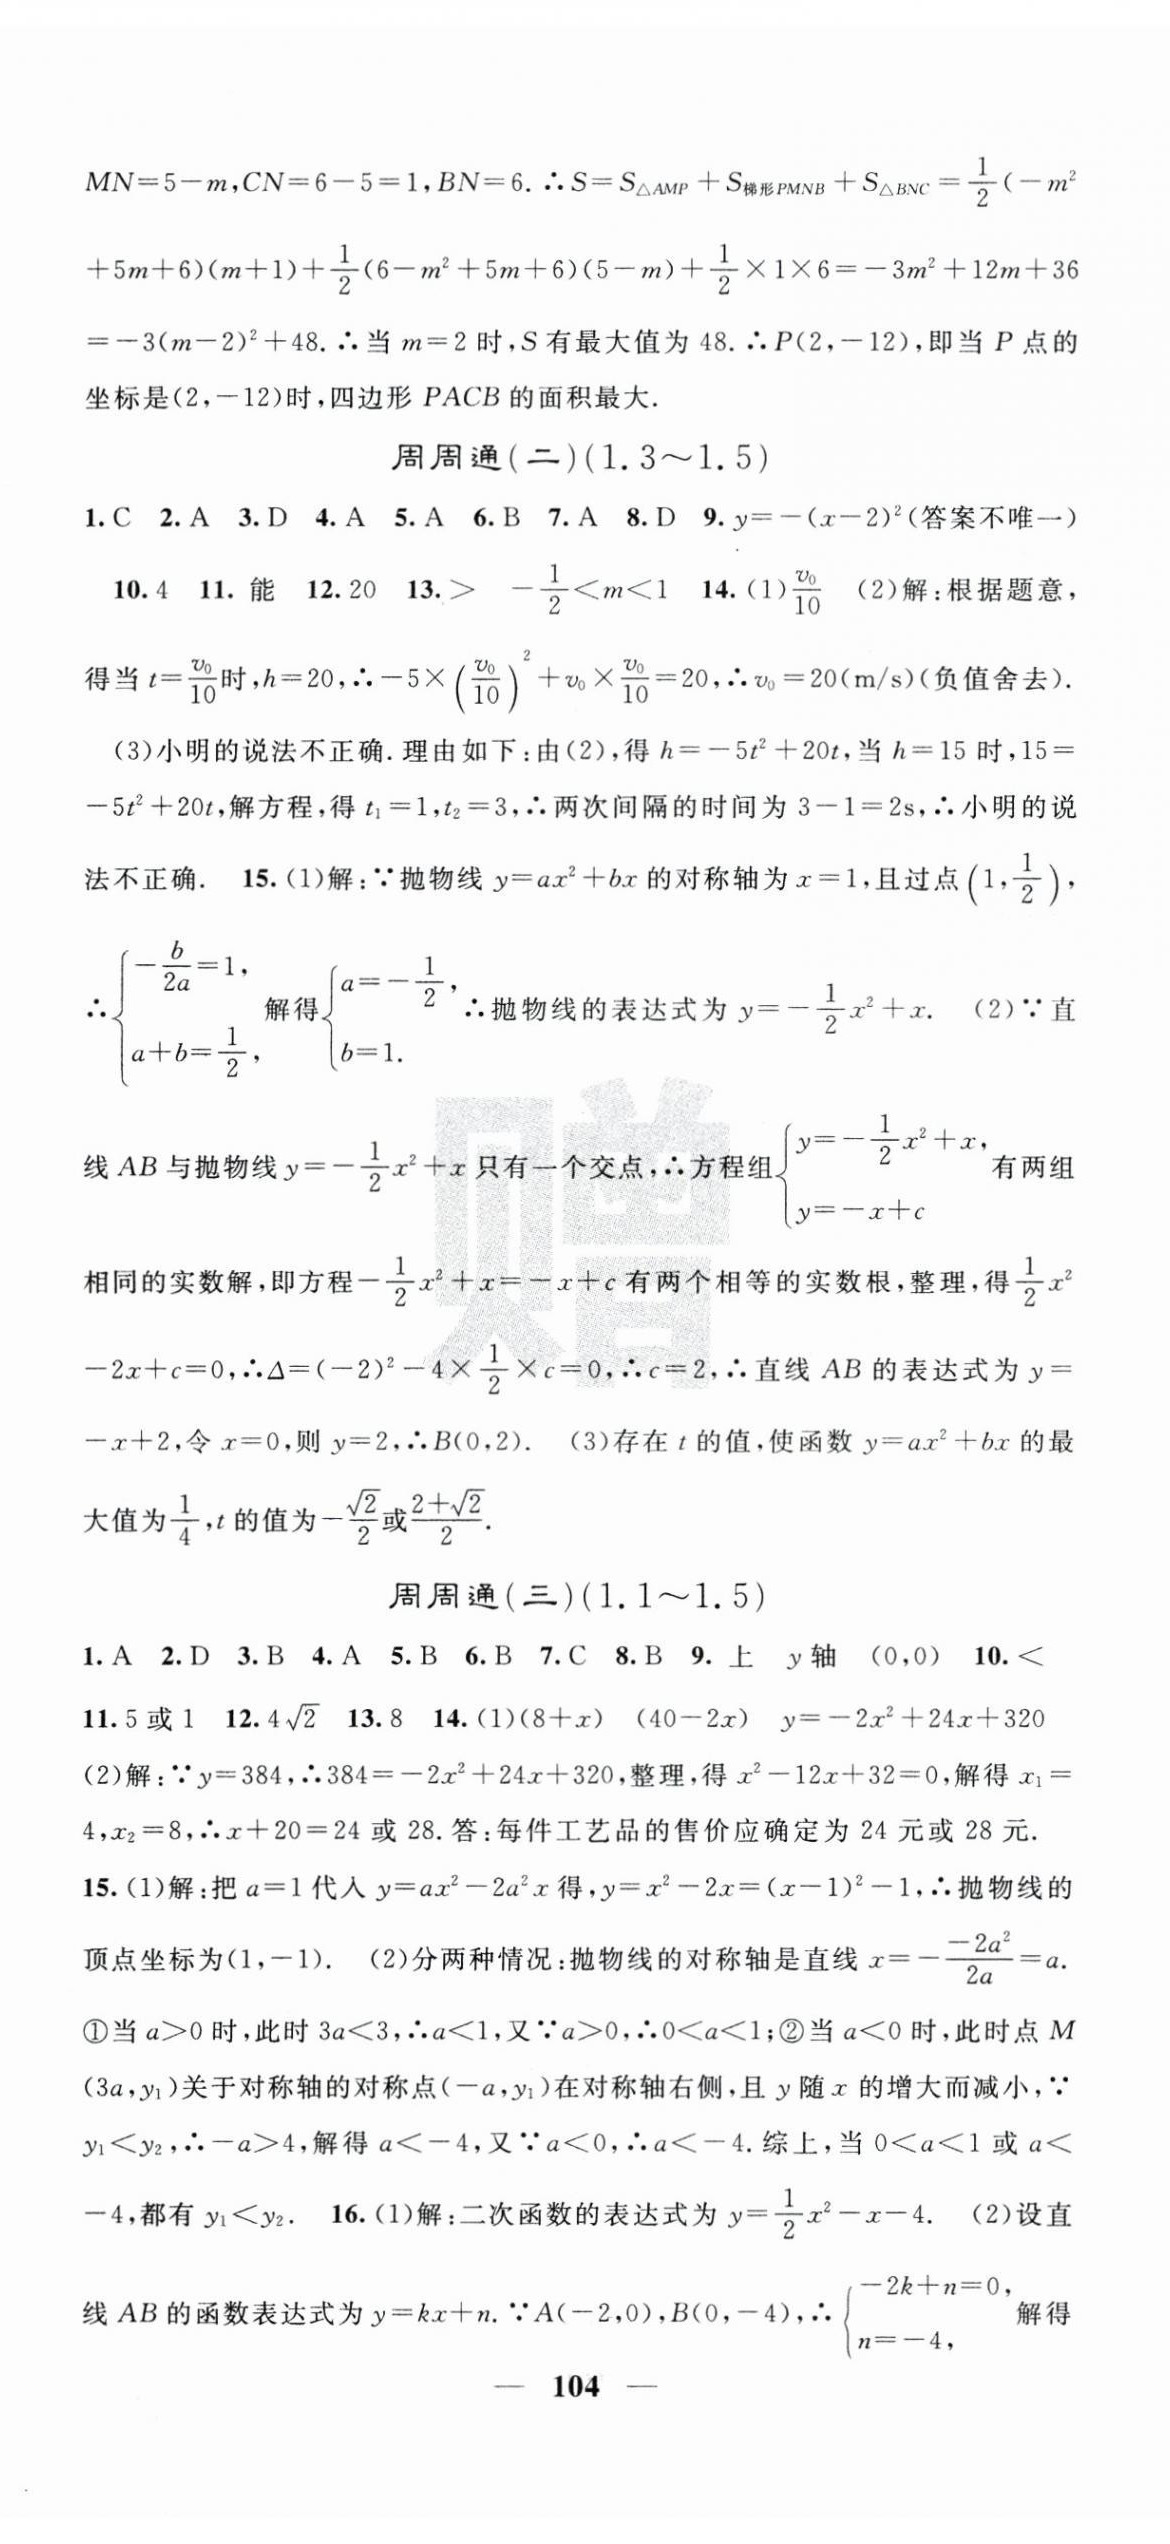 MN=5-m,CN=6-5=1,BN=6.∴S=S△AMP+S梯形PMNB+S△BNC=1/2(-m²
+5m+6)(m+1)+1/2(6-m²+5m+6)(5-m)+1/2×1×6=-3m²+12m+36
=-3(m-2)²+48.∴当 m=2 时,S 有最大值为 48.∴P(2,-12),即当 P 点的
坐标是(2,-12)时,四边形 PACB 的面积最大.
周周通(二)(1.3~1.5)
1.C 2.A 3.D 4.A 5.A 6.B 7.A 8.D 9.y=-(x-2)²(答案不唯一)
10.4 11.能 12.20 13.> -1/2<m<1 14.(1)v₀/10 (2)解:根据题意,
得当 t=v₀/10时,h=20,∴-5×(v₀/10)²+v₀×v₀/10=20,∴v₀=20(m/s)(负值舍去).
(3)小明的说法不正确.理由如下:由(2),得 h=-5t²+20t,当 h=15 时,15=
-5t²+20t,解方程,得 t₁=1,t₂=3,∴两次间隔的时间为 3-1=2s,∴小明的说
法不正确. 15.(1)解:∵抛物线 y=ax²+bx 的对称轴为 x=1,且过点(1,1/2),
∴{-b/2a=1, a+b=1/2, 解得{a=-1/2, b=1. ∴抛物线的表达式为 y=-1/2x²+x. (2)∵直
线 AB 与抛物线 y=-1/2x²+x 只有一个交点,∴方程组{y=-1/2x²+x, y=-x+c 有两组
相同的实数解,即方程-1/2x²+x=-x+c 有两个相等的实数根,整理,得1/2x²
-2x+c=0,∴Δ=(-2)²-4×1/2×c=0,∴c=2,∴直线 AB 的表达式为 y=
-x+2,令 x=0,则 y=2,∴B(0,2). (3)存在 t 的值,使函数 y=ax²+bx 的最
大值为1/4,t 的值为-√2/2或(2+√2)/2.
周周通(三)(1.1~1.5)
1.A 2.D 3.B 4.A 5.B 6.B 7.C 8.B 9.上 y轴 (0,0) 10.<
11.5 或 1 12.4√2 13.8 14.(1)(8+x) (40-2x) y=-2x²+24x+320
(2)解:∵y=384,∴384=-2x²+24x+320,整理,得 x²-12x+32=0,解得 x₁=
4,x₂=8,∴x+20=24 或 28.答:每件工艺品的售价应确定为 24 元或 28 元.
15.(1)解:把 a=1 代入 y=ax²-2a²x 得,y=x²-2x=(x-1)²-1,∴抛物线的
顶点坐标为(1,-1). (2)分两种情况:抛物线的对称轴是直线 x=--2a²/2a=a.
①当 a>0 时,此时 3a<3,∴a<1,又∵a>0,∴0<a<1;②当 a<0 时,此时点 M
(3a,y₁)关于对称轴的对称点(-a,y₁)在对称轴右侧,且 y 随 x 的增大而减小,∵
y₁<y₂,∴-a>4,解得 a<-4,又∵a<0,∴a<-4.综上,当 0<a<1 或 a<
-4,都有 y₁<y₂. 16.(1)解:二次函数的表达式为 y=1/2x²-x-4. (2)设直
线 AB 的函数表达式为 y=kx+n.∵A(-2,0),B(0,-4),∴{-2k+n=0, n=-4, 解得
— 104 —
赠